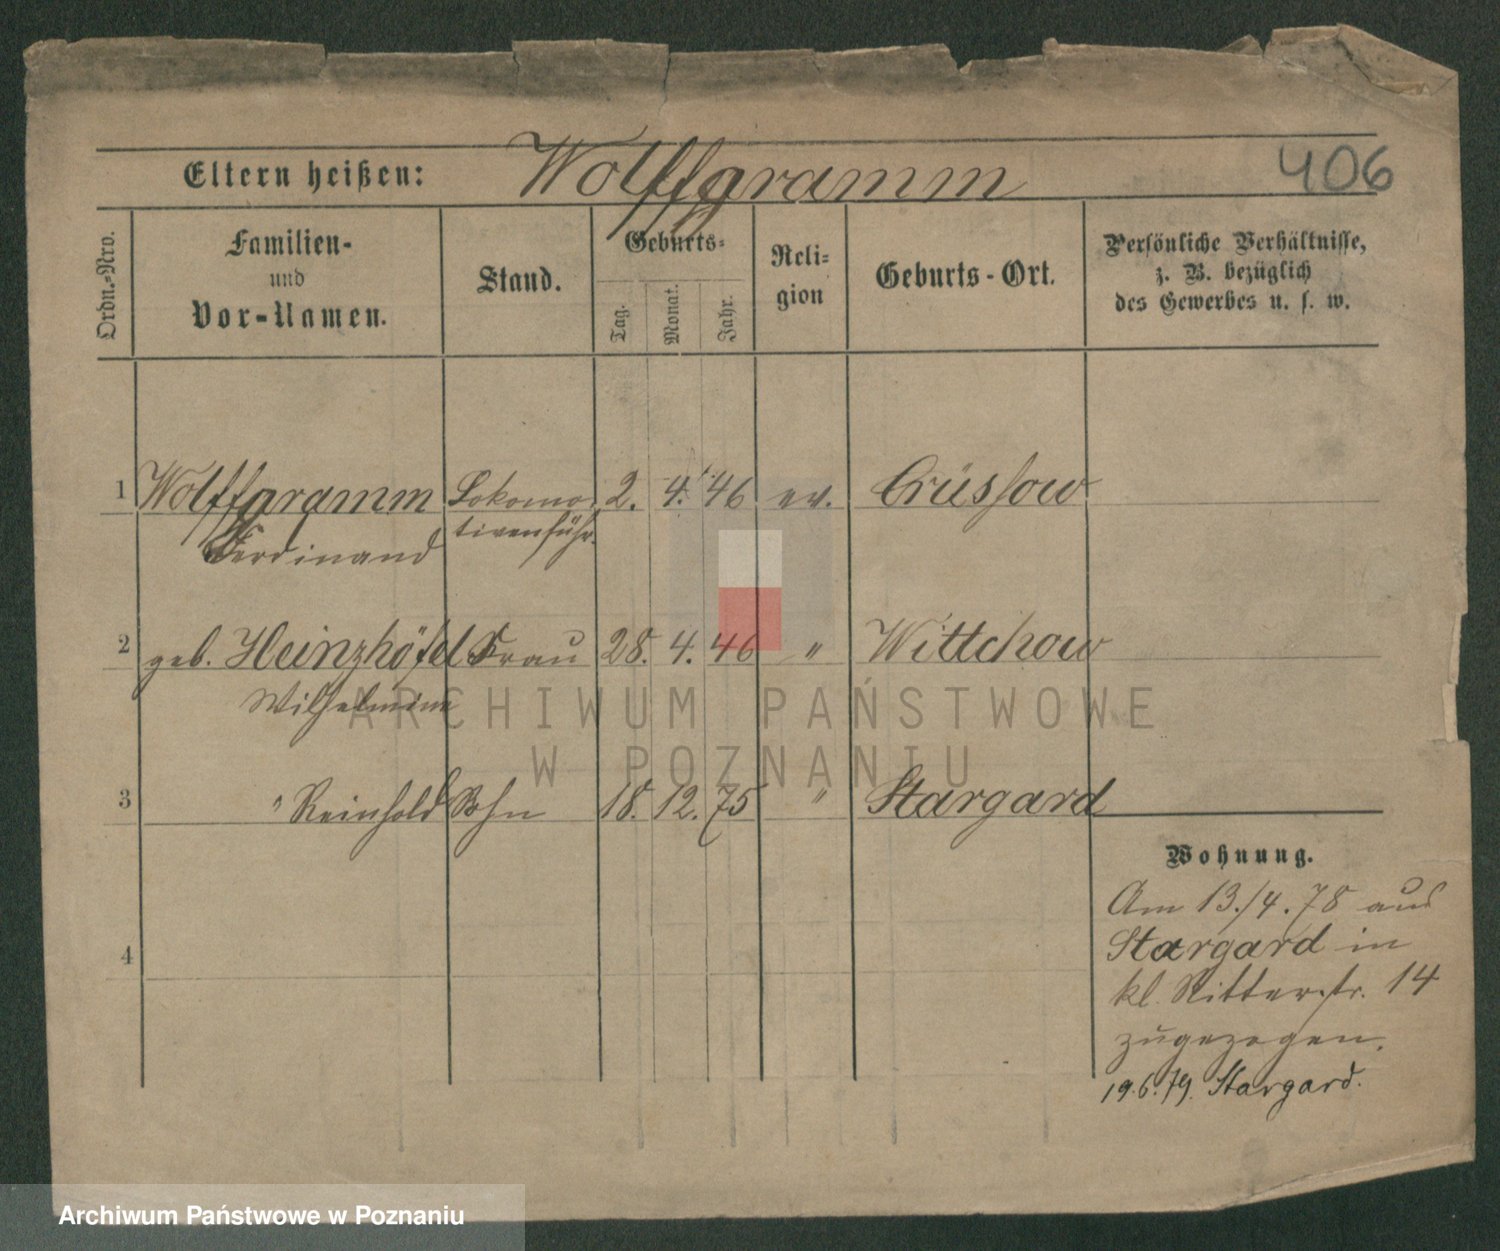 Eltern heißen: Wolffgramm 406
Ordn.-Nro.
Familien-
und
Vor-Namen.
Stand.
Geburts-
Tag.
Monat.
Jahr.
Reli-
gion
Geburts-Ort.
Persönliche Verhältnisse,
z. B. bezüglich
des Gewerbes u. s. w.
1 Wolffgramm Lokomo- 2. 4. 46 ev. Crüssow
Ferdinand tivenführ.
2 geb. Heinzhöfel Frau 28. 4. 46 " Wittchow
Wilhelmine
3 " Reinhold Sohn 18. 12. 75 " Stargard
4
Wohnung.
Am 13./4. 78 aus
Stargard in
kl. Ritterstr. 14
zugezogen.
19.6.79. Stargard.
ARCHIWUM PAŃSTWOWE
W POZNANIU
Archiwum Państwowe w Poznaniu